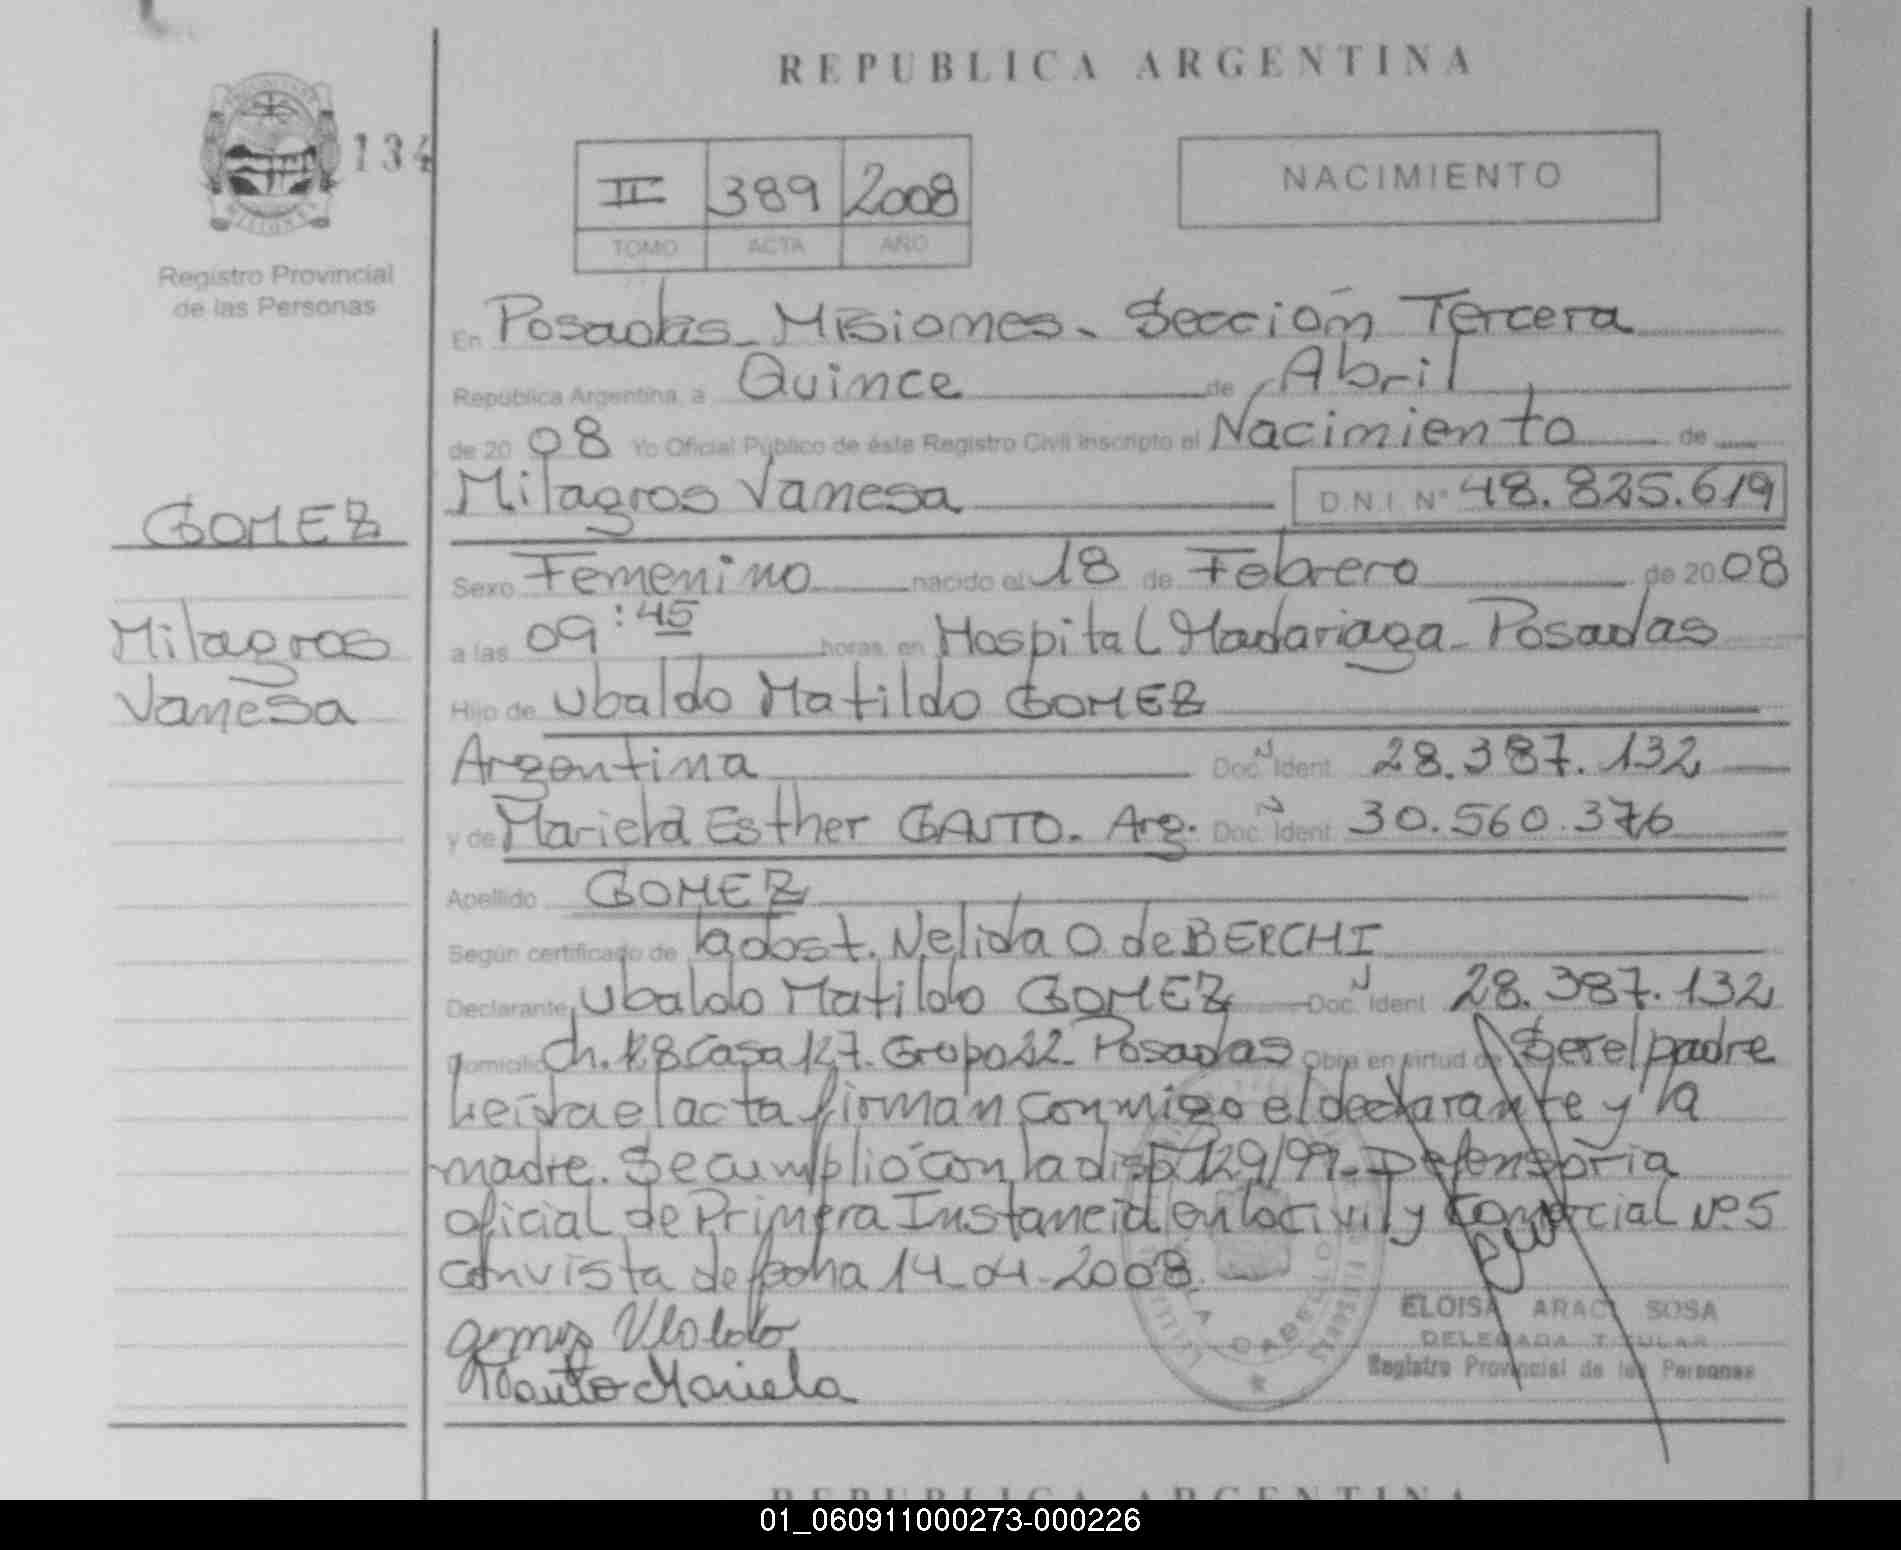 REPUBLICA ARGENTINA
134
II 389 2008
TOMO ACTA AÑO
NACIMIENTO
Registro Provincial
de las Personas
En Posadas - Misiones - Sección Tercera
República Argentina, a Quince de Abril
de 2008 Yo Oficial Público de éste Registro Civil inscripto el Nacimiento de
Milagros Vanesa D.N.I. Nº 48.825.619
GOMEZ
Milagros
Vanesa
Sexo Femenino nacido el 18 de Febrero de 2008
a las 09:45 horas en Hospital Madariaga - Posadas
Hijo de Ubaldo Matildo GOMEZ
Argentina Doc. Ident. 28.387.132
y de Mariela Esther GAUTO. Arg. Doc. Ident. 30.560.376
Apellido GOMEZ
Según certificado de la obst. Nelida O de BERCHI
Declarante Ubaldo Matildo GOMEZ Doc. Ident. 28.387.132
Domicilio Ch. Casa 127 - Grupo 22 - Posadas Obra en virtud de Ser el padre
Leída el acta firman conmigo el declarante y la
madre. Se cumplió con la disp 729/99 - Defensoria
oficial de Primera Instancia en lo civil y comercial Nº 5
con vista de fecha 14-04-2008.
Gomez Ubaldo
Gauto Mariela
ELOISA ARACI SOSA
DELEGADA TITULAR
Registro Provincial de las Personas
REPUBLICA ARGENTINA
01_060911000273-000226